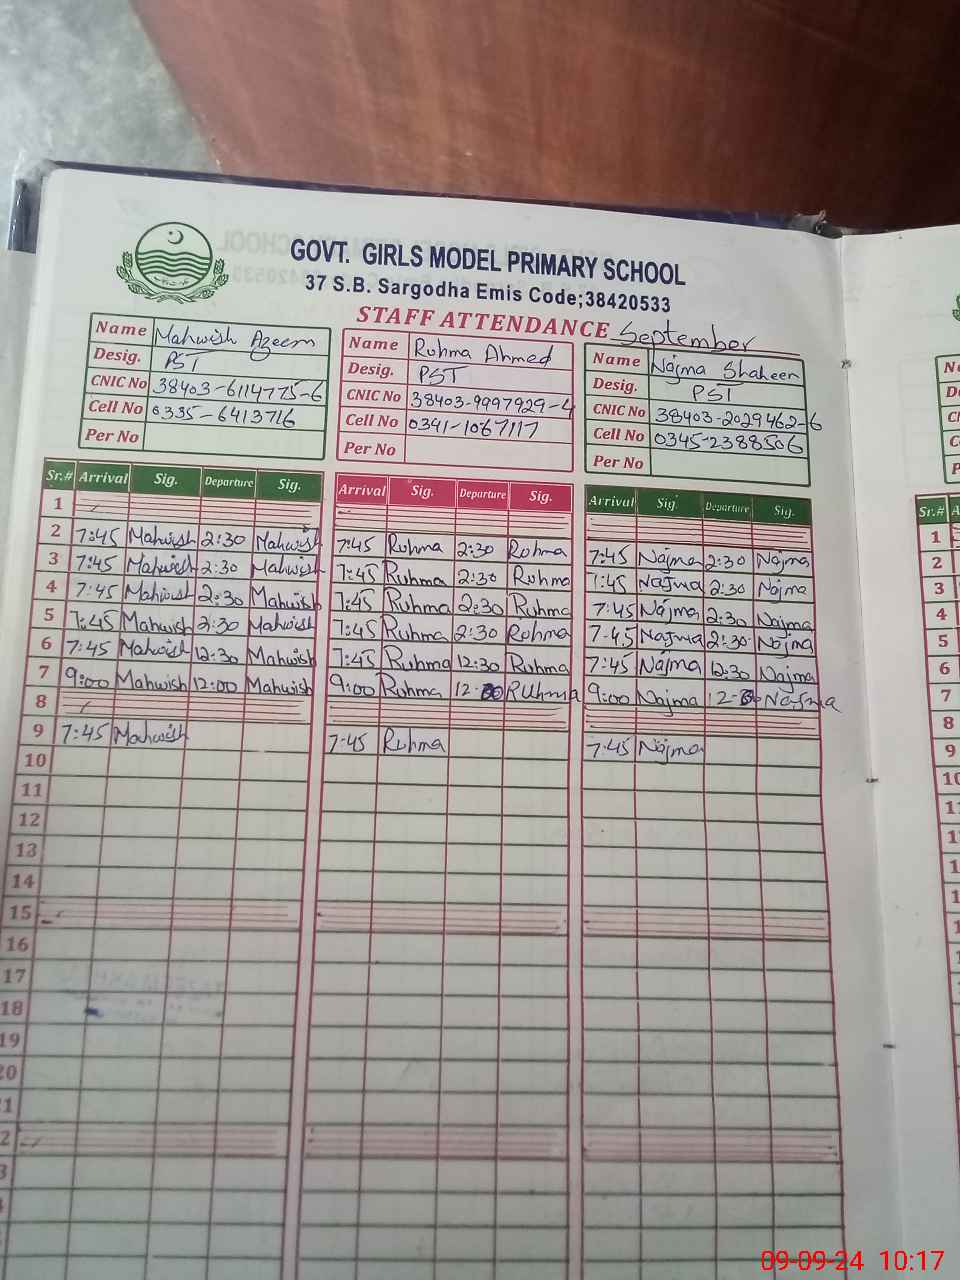 GOVT. GIRLS MODEL PRIMARY SCHOOL
37 S.B. Sargodha Emis Code;38420533
STAFF ATTENDANCE September
Name Mahwish Azeem
Desig. PST
CNIC No 38403-6114775-6
Cell No 0335-6413716
Per No
Name Ruhma Ahmed
Desig. PST
CNIC No 38403-9997929-4
Cell No 0341-1067117
Per No
Name Najma Shaheen
Desig. PST
CNIC No 38403-2029462-6
Cell No 0345-2388506
Per No
Sr.# Arrival Sig. Departure Sig. Arrival Sig. Departure Sig. Arrival Sig. Departure Sig.
1
2 7:45 Mahwish 2:30 Mahwish 7:45 Ruhma 2:30 Ruhma 7:45 Najma 2:30 Najma
3 7:45 Mahwish 2:30 Mahwish 7:45 Ruhma 2:30 Ruhma 7:45 Najma 2:30 Najma
4 7:45 Mahwish 2:30 Mahwish 7:45 Ruhma 2:30 Ruhma 7:45 Najma 2:30 Najma
5 7:45 Mahwish 2:30 Mahwish 7:45 Ruhma 2:30 Ruhma 7:45 Najma 2:30 Najma
6 7:45 Mahwish 12:30 Mahwish 7:45 Ruhma 12:30 Ruhma 7:45 Najma 12:30 Najma
7 9:00 Mahwish 12:00 Mahwish 9:00 Ruhma 12:00 RUhma 9:00 Najma 12:00 Najma
8
9 7:45 Mahwish 7:45 Ruhma 7:45 Najma
10
11
12
13
14
15
16
17
18
19
20
Sr.#
1
2
3
4
5
6
7
8
9
10
09-09-24 10:17